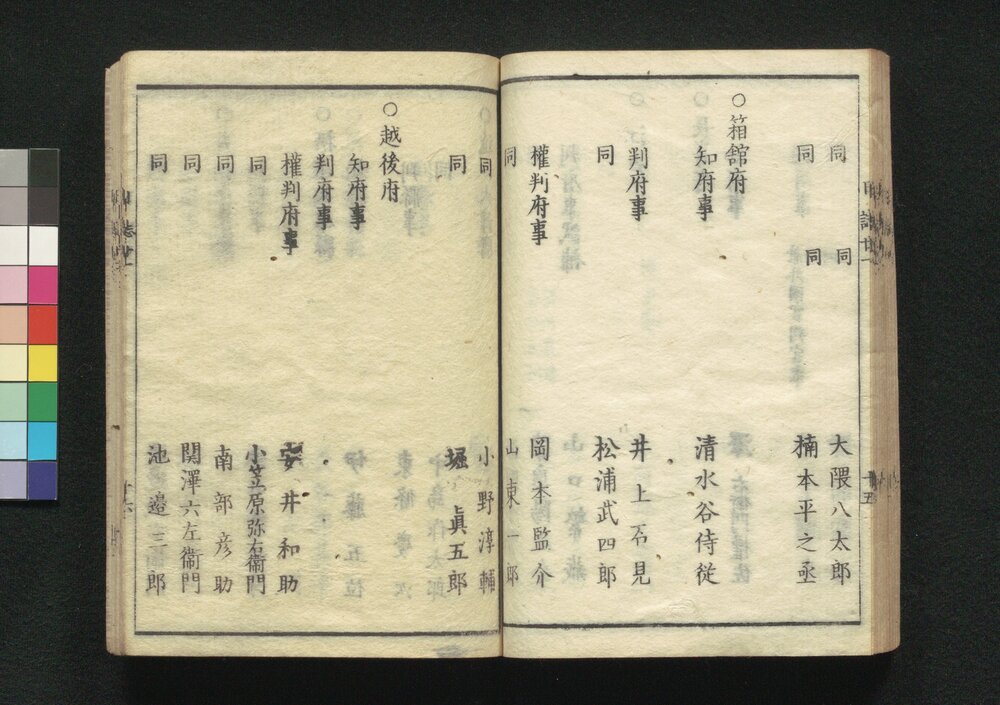 同 同 大隈八太郎
同 同 楠本平之丞
○箱舘府
知府事 清水谷侍從
判府事 井上石見
同 松浦武四郎
權判府事 岡本監介
同 山東一郎
同 小野淳輔
同 堀眞五郎
○越後府
知府事
判府事
權判府事 安井和助
同 小笠原弥右衞門
同 南部彦助
同 関澤六左衞門
同 池邉三郎